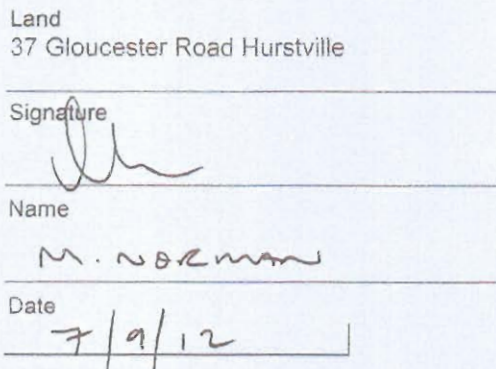 Land
37 Gloucester Road Hurstville
Signature
Name
M. NORMAN
Date
7/9/12